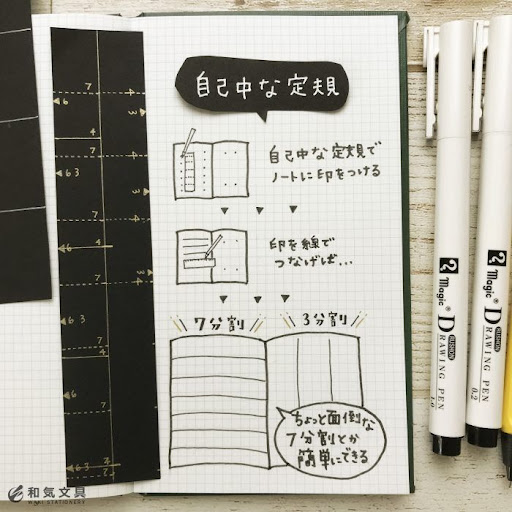 自己中な定規
自己中な定規で
ノートに印をつける
印を線で
つなげば...
7分割
3分割
ちょっと面倒な
7分割とか
簡単にできる
7
4
6
3
7
4
7
4
6 3
7
4
3
4
7
6 3
7
4
7
4
6
3
4
2
Magic®
DRAWING PEN
1.0
Magic®
DRAWING PEN
0.2
和気文具
WAKI STATIONERY